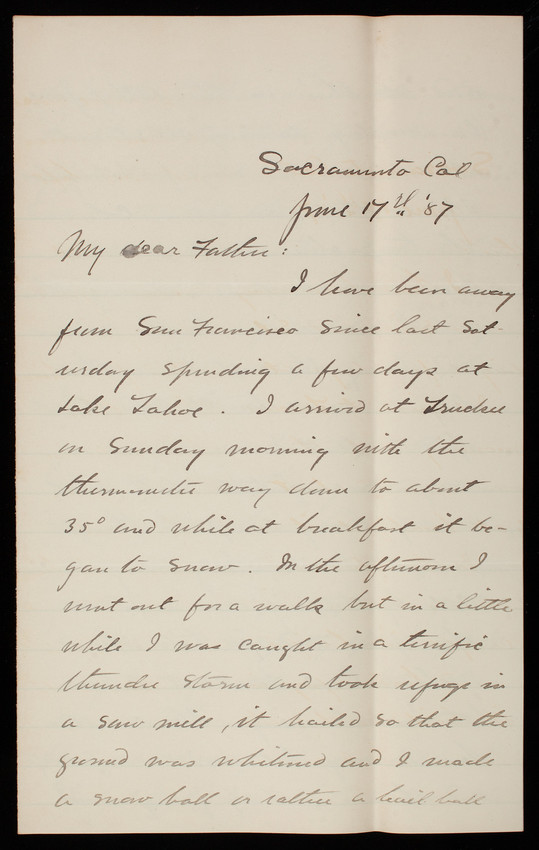 Sacramento Cal
June 17th '87
My dear Father:
I have been away
from San Francisco since last Sat-
urday spending a few days at
Lake Tahoe. I arrived at Truckee
on Sunday morning with the
thermometer way down to about
35° and while at breakfast it be-
gan to snow. In the afternoon I
went out for a walk but in a little
while I was caught in a terrific
thunder storm and took refuge in
a saw mill, it hailed so that the
ground was whitened and I made
a snow ball or rather a hail ball